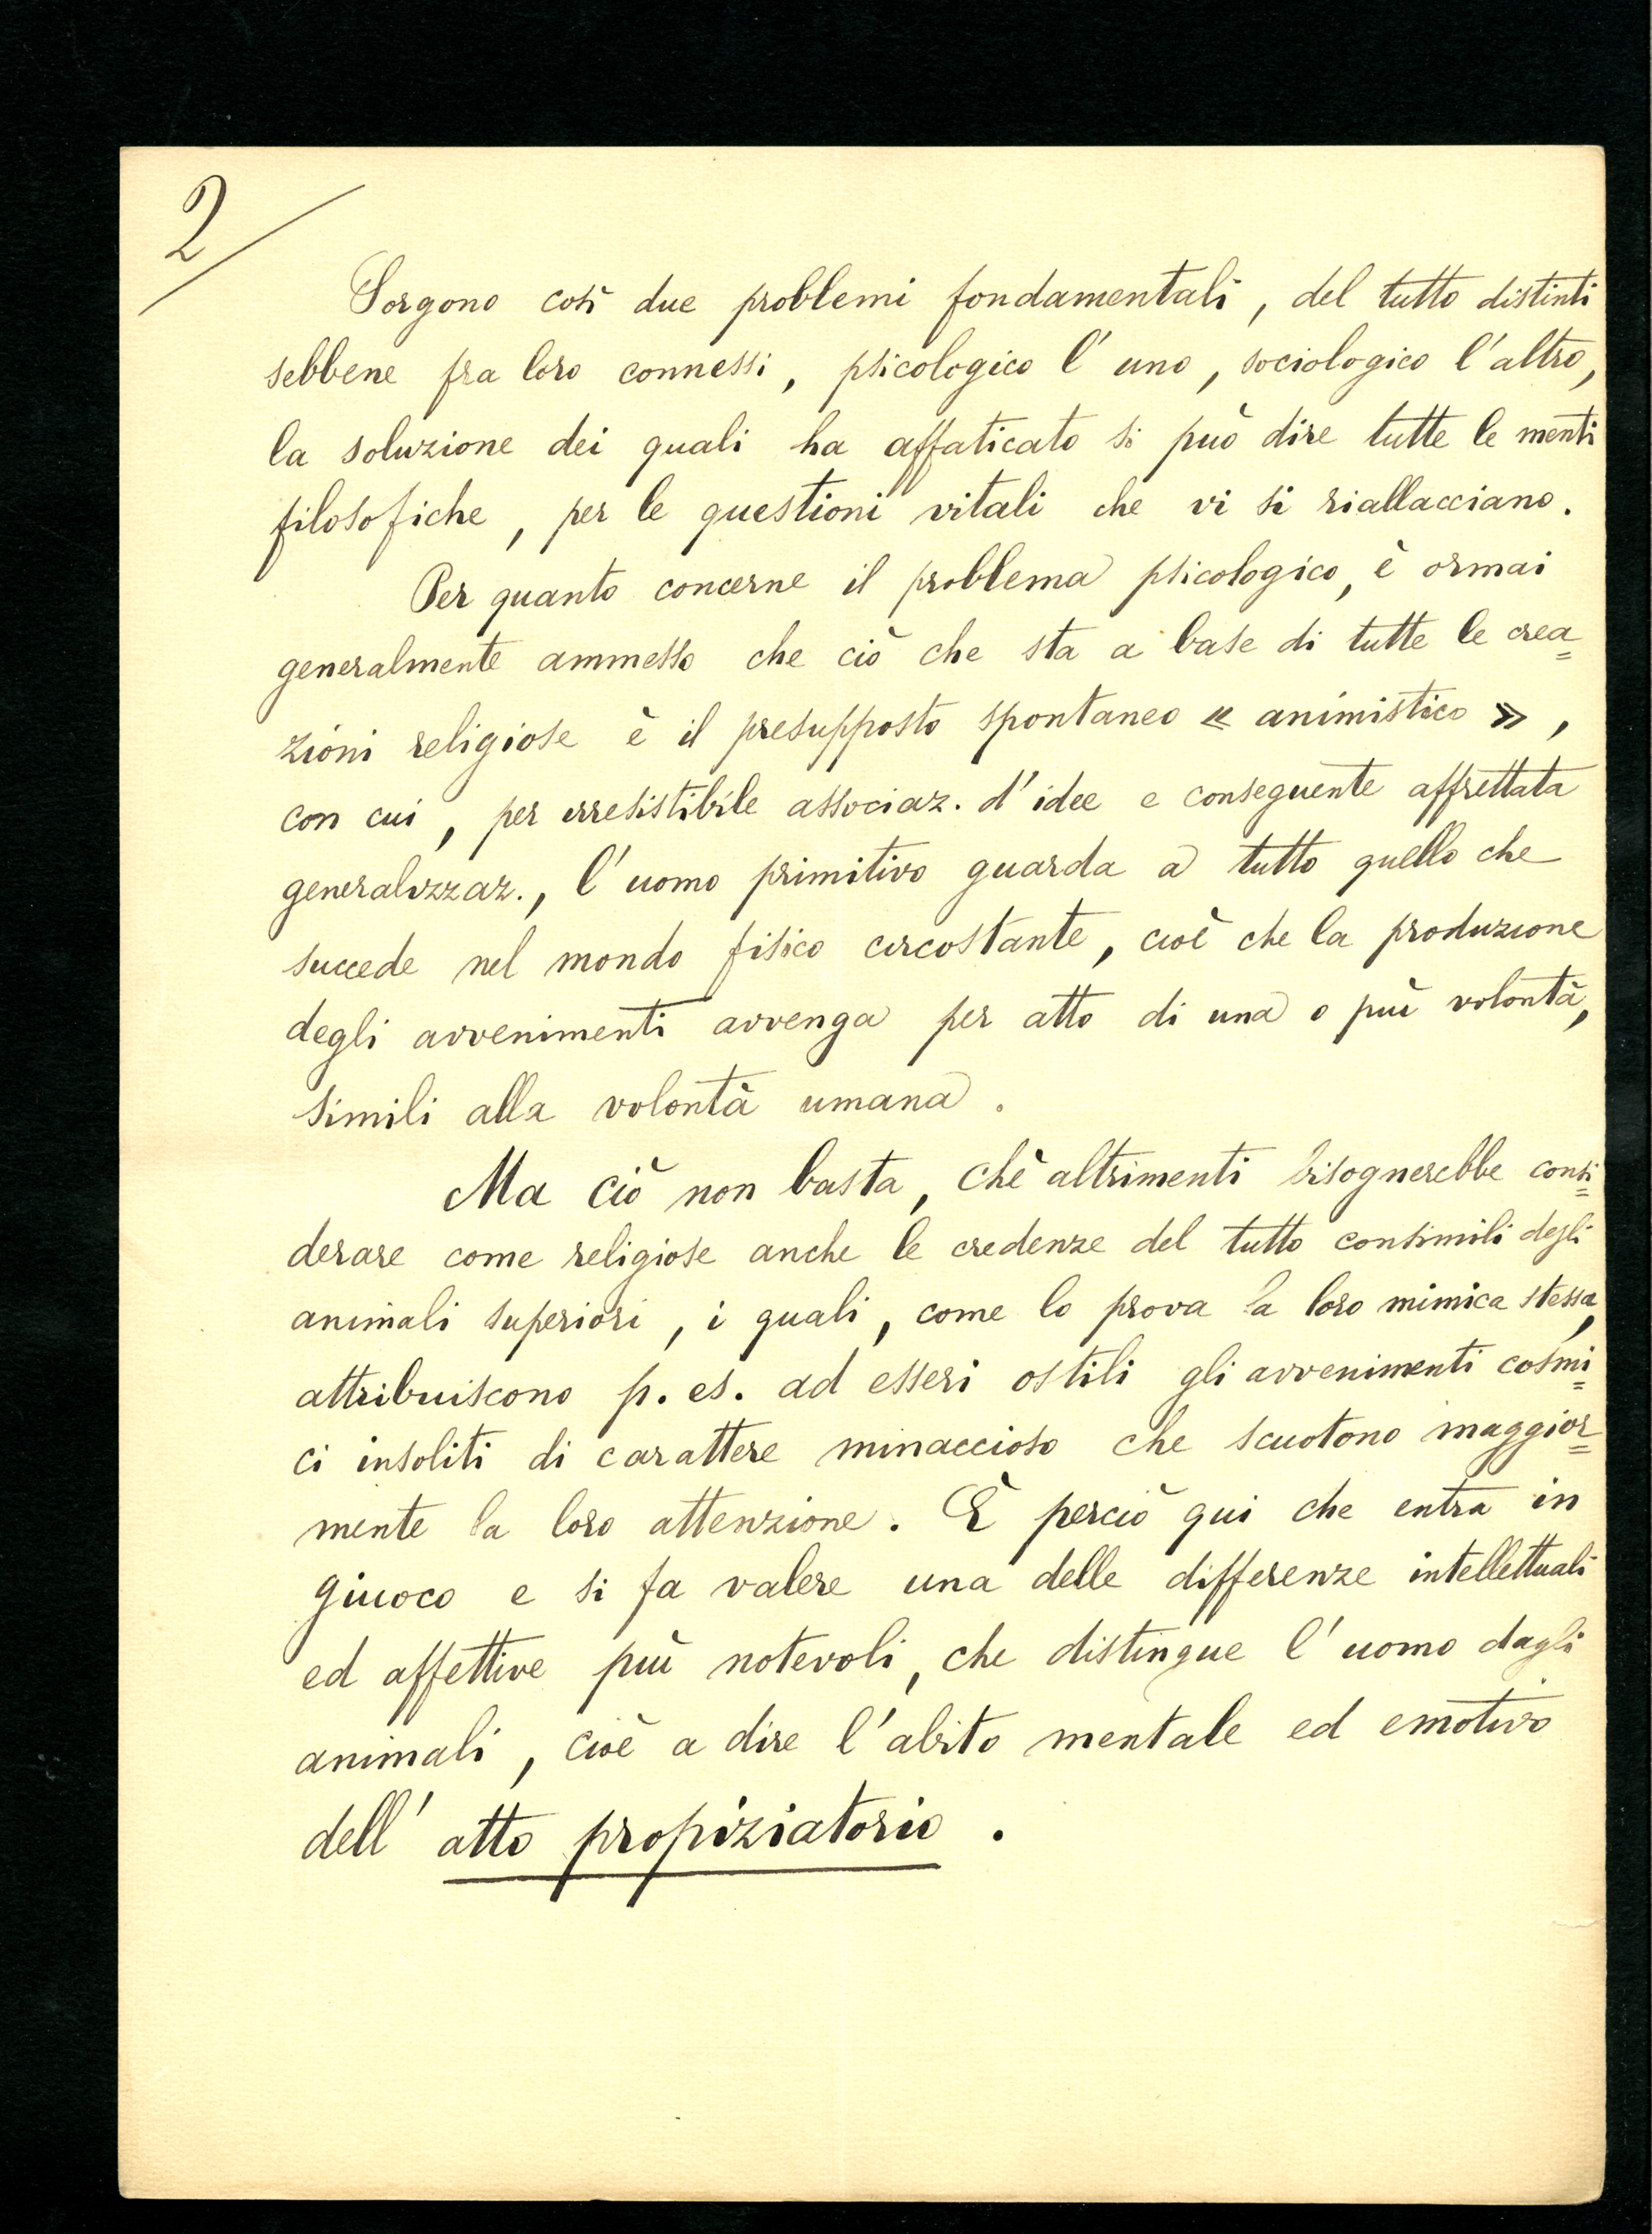 2
Sorgono così due problemi fondamentali, del tutto distinti
sebbene fra loro connessi, psicologico l'uno, sociologico l'altro,
la soluzione dei quali ha affaticato si può dire tutte le menti
filosofiche, per le questioni vitali che vi si riallacciano.
Per quanto concerne il problema psicologico, è ormai
generalmente ammesso che ciò che sta a base di tutte le crea=
zioni religiose è il presupposto spontaneo « animistico »,
con cui, per irresistibile associaz. d'idee e conseguente affrettata
generalizzaz., l'uomo primitivo guarda a tutto quello che
succede nel mondo fisico circostante, cioè che la produzione
degli avvenimenti avvenga per atto di una o più volontà,
simili alla volontà umana.
Ma ciò non basta, chè altrimenti bisognerebbe consi=
derare come religiose anche le credenze del tutto consimili degli
animali superiori, i quali, come lo prova la loro mimica stessa,
attribuiscono p. es. ad esseri ostili gli avvenimenti cosmi=
ci insoliti di carattere minaccioso che scuotono maggior=
mente la loro attenzione. È perciò qui che entra in
giuoco e si fa valere una delle differenze intellettuali
ed affettive più notevoli, che distingue l'uomo dagli
animali, cioè a dire l'abito mentale ed emotivo
dell'atto propiziatorio.